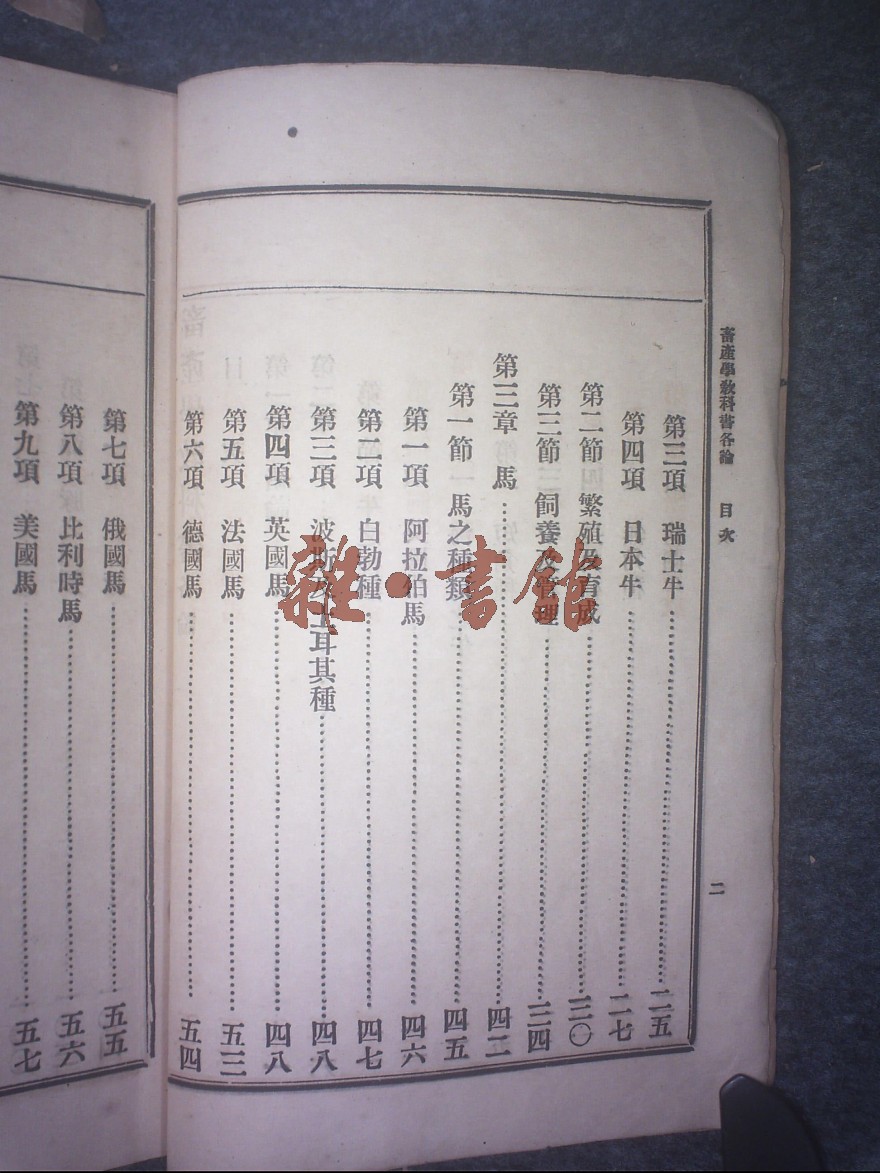 畜產學教科書各論 目次 二
第三項 瑞士牛 二五
第四項 日本牛 二七
第二節 繁殖及育成 三〇
第三節 飼養及管理 三四
第三章 馬 四二
第一節 馬之種類 四五
第一項 阿拉伯馬 四六
第二項 白勃種 四七
第三項 波斯及土耳其種 四八
第四項 英國馬 四八
第五項 法國馬 五三
第六項 德國馬 五四
第七項 俄國馬 五五
第八項 比利時馬 五六
第九項 美國馬 五七
雜·書館